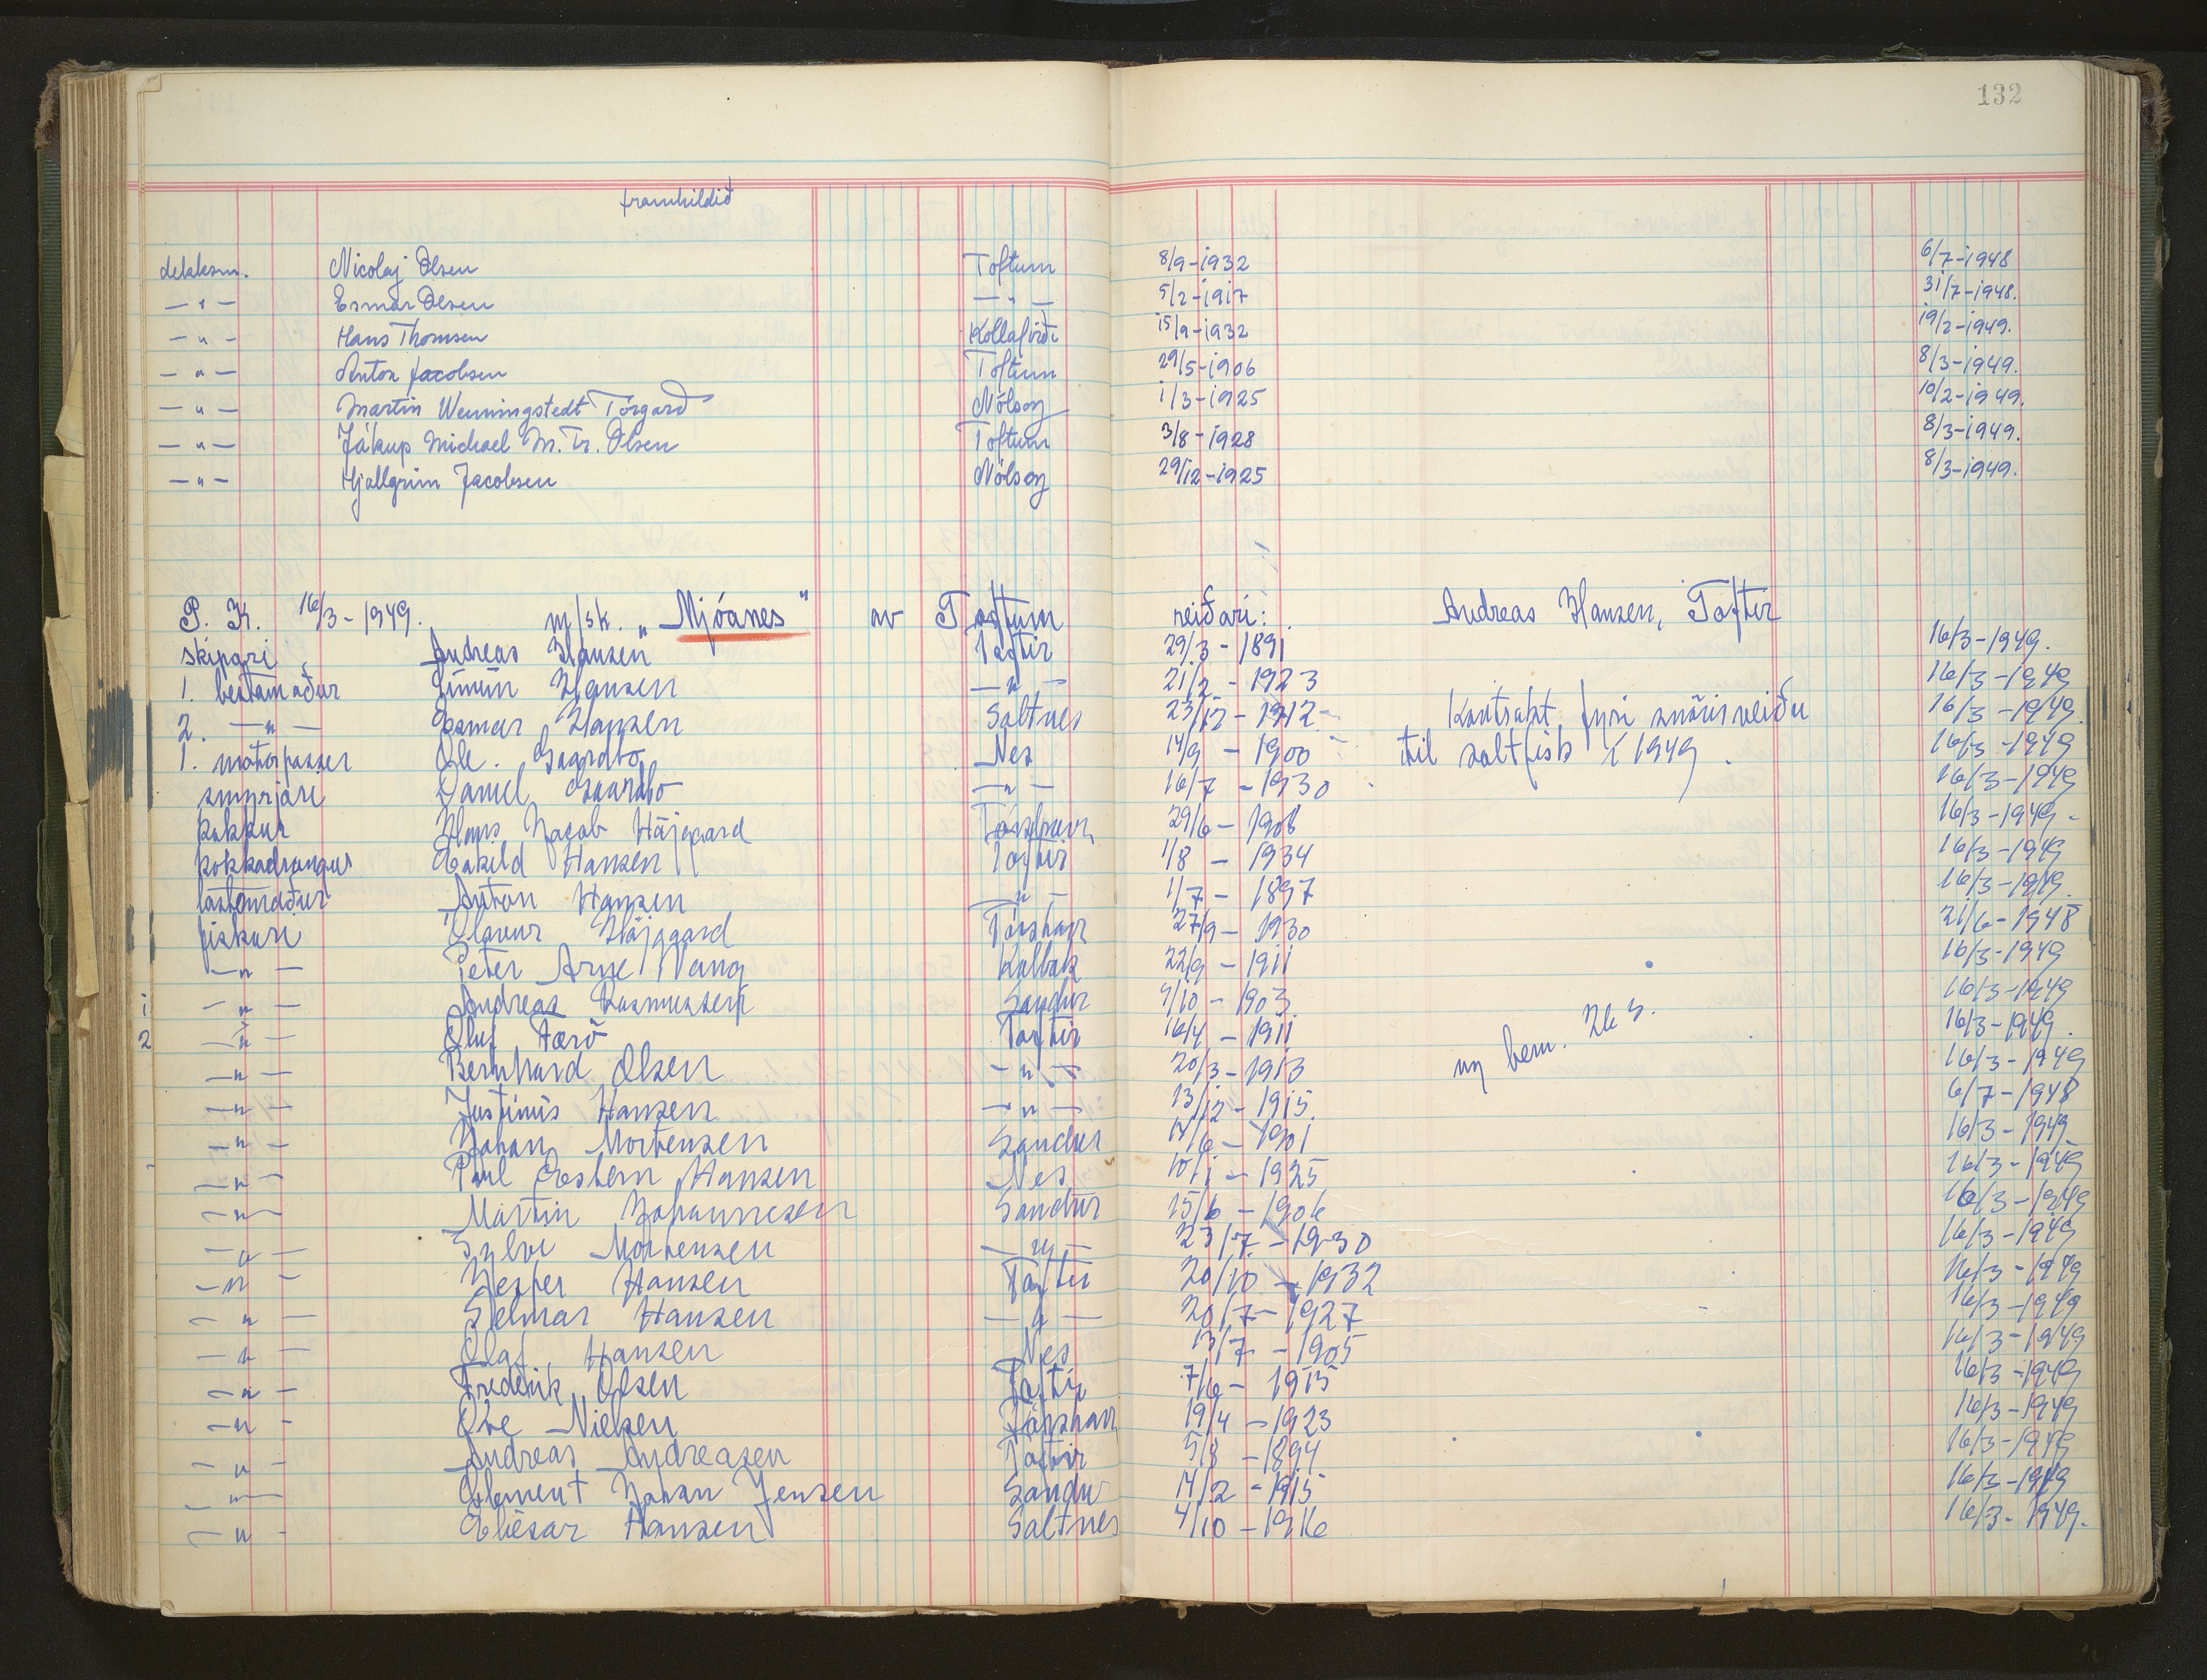 132
framhildið
dekksm. Nicolaj Olsen Toftum 8/9-1932 6/7-1948
—"— Esmar Olsen —"— 5/2-1917 31/7-1948.
—"— Hans Thomsen Kollafirði 15/9-1932 19/2-1949.
—"— Anton Jacobsen Toftum 29/5-1906 8/3-1949.
—"— Martin Wenningstedt Tórgarð Nólsoy 1/3-1925 10/2-1949.
—"— Jákup Michael M. Tr. Olsen Toftum 3/8-1928 8/3-1949.
—"— Hjallgrim Jacobsen Nólsoy 29/12-1925 8/3-1949.
P. K. 16/3-1949. m/sk. „Mjóanes" av Toftum reiðari: Andreas Hansen, Toftir
skipari Andreas Hansen Toftir 29/3-1891 16/3-1949.
1. bestamaður Jímun Hansen —"— 21/2-1923 16/3-1949
2. —"— Esmar Hansen Saltnes 23/12-1912 Kontrakt fyri snørisveiðu 16/3-1949.
1. motorpasser Ole. Gaardbo Nes 14/9-1900 til saltfisk í 1949. 16/3-1949
smyrjari Daniel Gaardbo —"— 16/7-1930 16/3-1949
kokkur Hans Jacob Højgaard Tórshavn 29/6-1908 16/3-1949-
kokkadrongur Eskild Hansen Toftir 1/8-1934 16/3-1949
lastamaður Anton Hansen —"— 1/7-1897 16/3-1949.
fiskari Ólavur Højgaard Tórshavn 27/9-1930 21/6-1948
—"— Peter Arne Vang Kollafj 22/9-1911 16/3-1949
1 —"— Andreas Rasmussen Sandur 9/10-1903 16/3-1949
2 —"— Óluf Færø Toftir 16/4-1911 my bem. 26 s. 16/3-1949.
—"— Bernhard Olsen —"— 20/3-1913 16/3-1949
—"— Justinus Hansen —"— 13/12-1915. 6/7-1948
—"— Johan Mortensen Sandur 17/6-1901 16/3-1949
—"— Paul Estern Hansen Nes 10/1-1925 16/3-1949
—"— Martin Johannesen Sandur 15/6-1906 16/3-1949
—"— Sylve Mortensen —"— 23/7-1930 16/3-1949
—"— Jesper Hansen Toftir 20/10-1932 16/3-1949
—"— Selmar Hansen —"— 20/7-1927 16/3-1949
—"— Olaf Hansen Nes 13/7-1905 16/3-1949
—"— Frederik Olsen Toftir 7/6-1915 16/3-1949
—"— Ove Nielsen Tórshavn 19/4-1923 16/3-1949
—"— Andreas Andreasen Toftir 5/8-1894 16/3-1949
—"— Clement Johan Jensen Sandur 14/2-1915 16/3-1949
—"— Eliesar Hansen Saltnes 4/10-1916 16/3-1949.